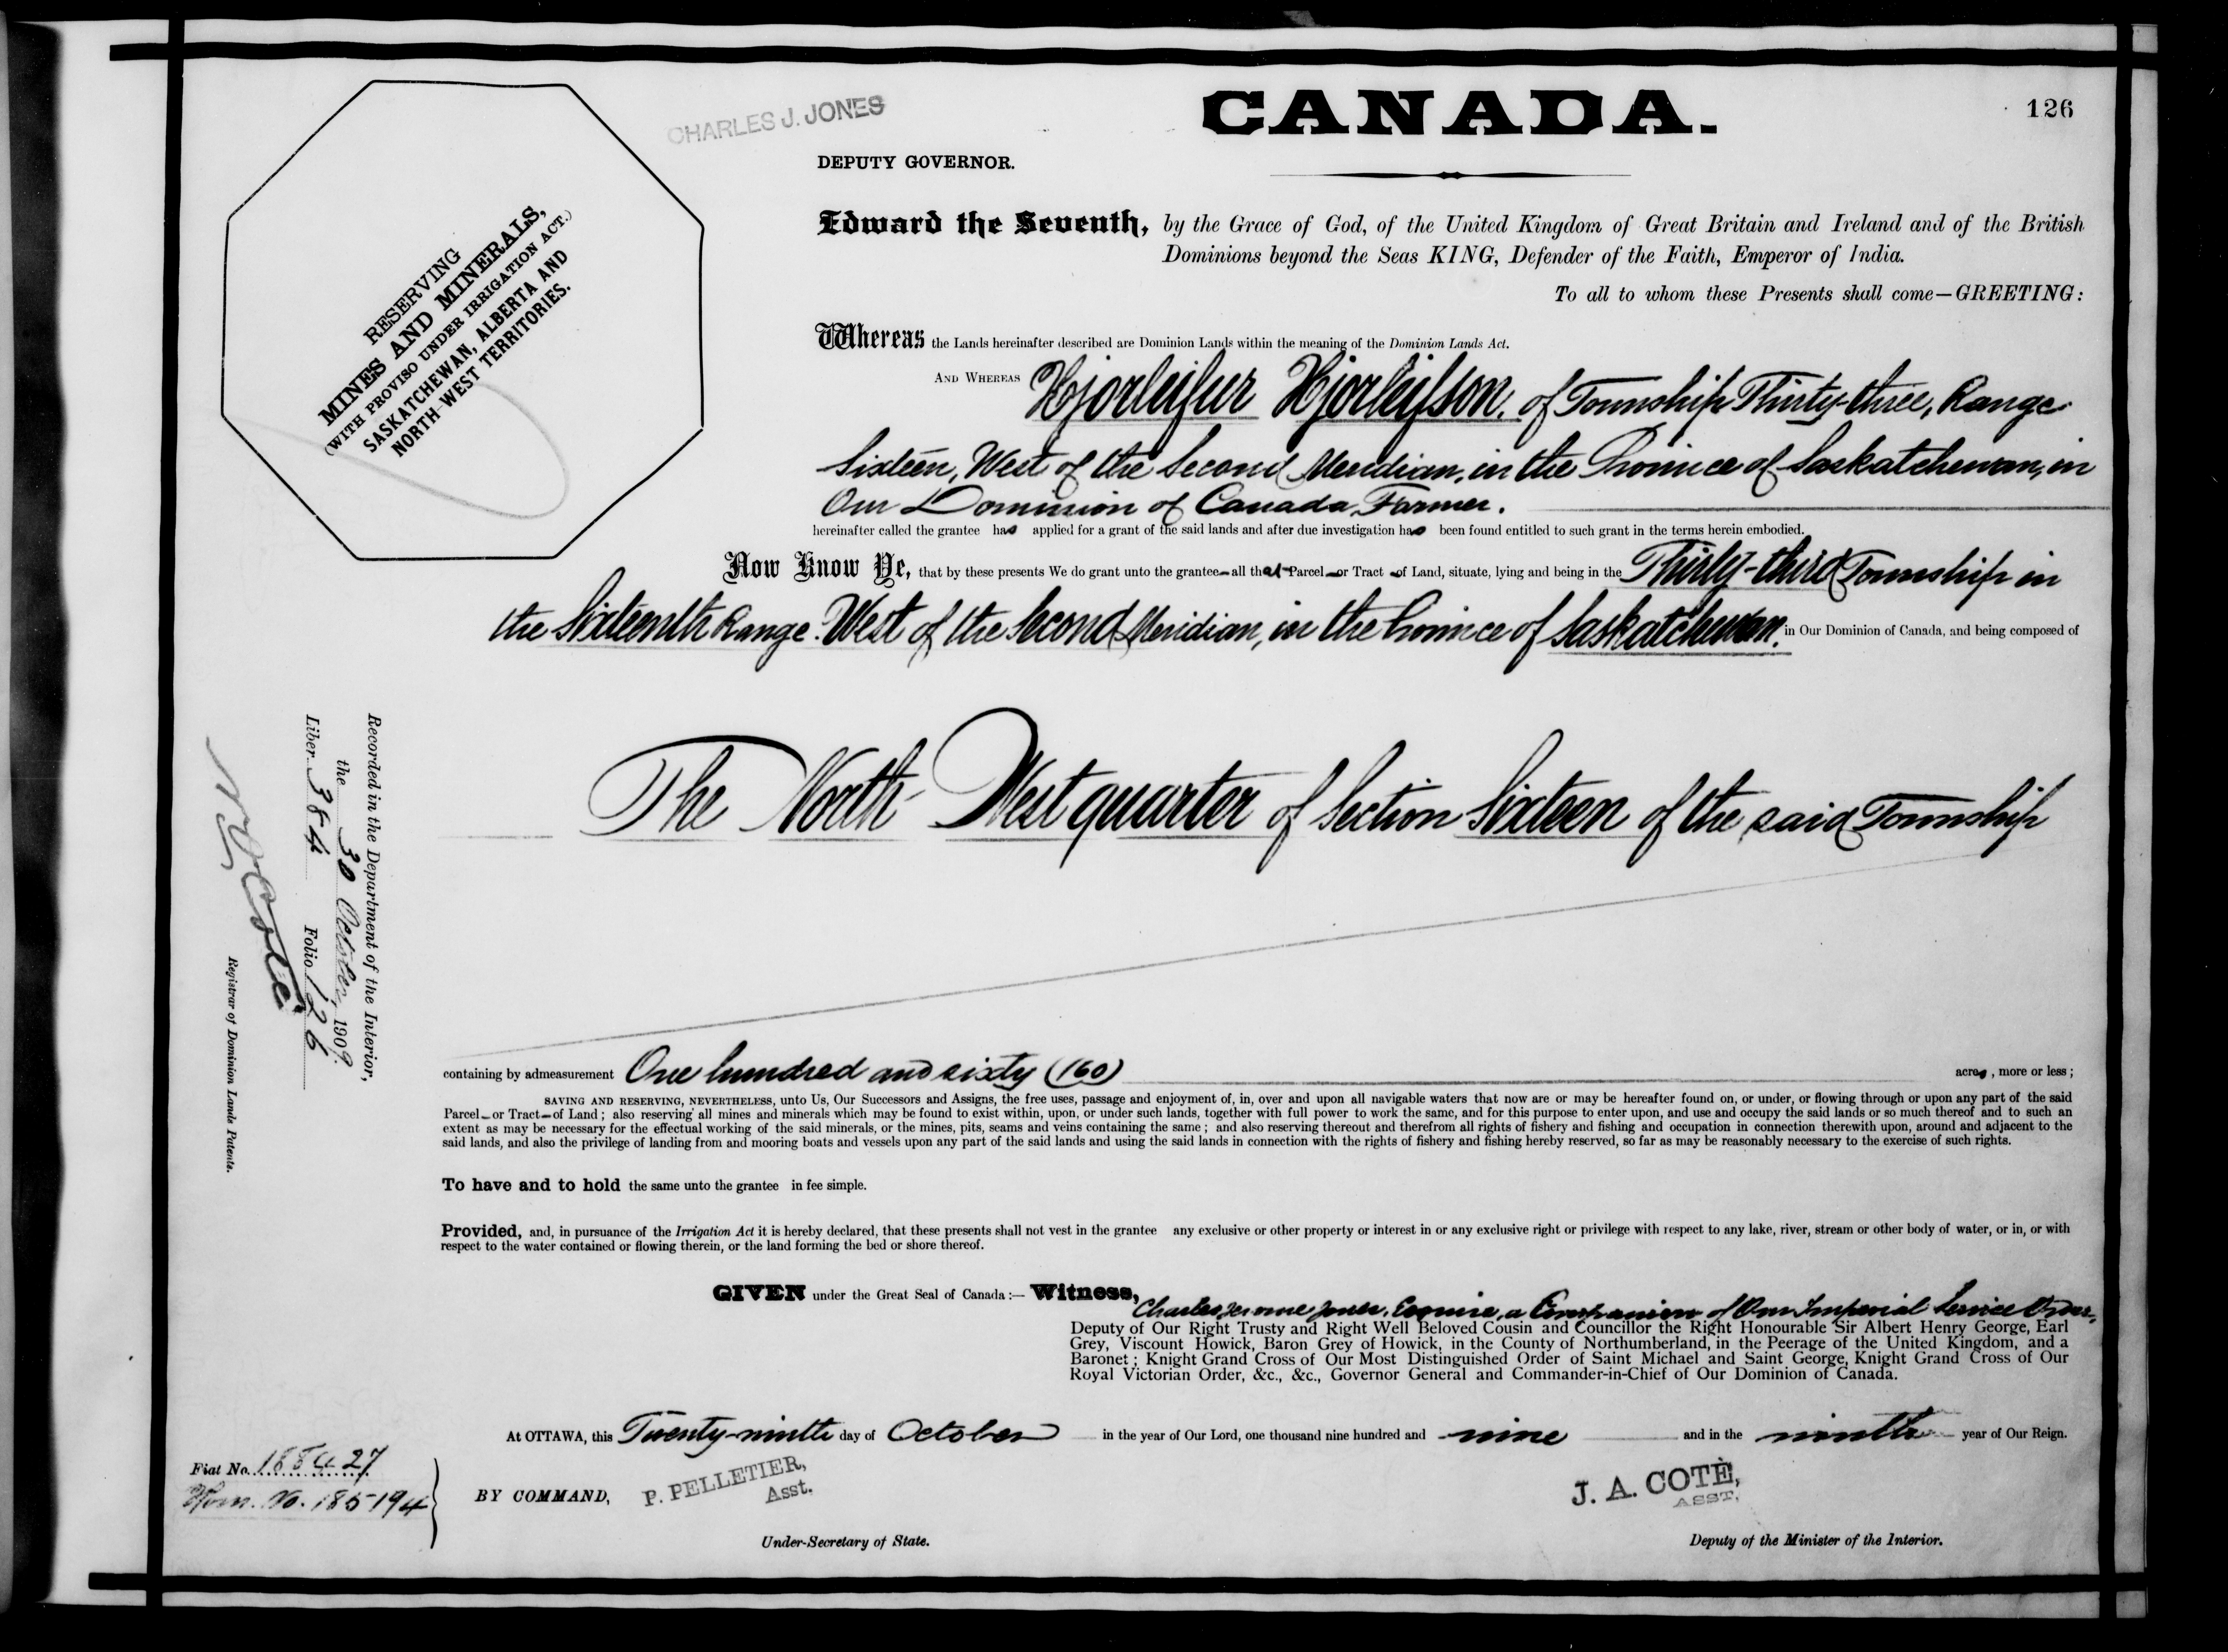 CANADA.
126
CHARLES J. JONES
DEPUTY GOVERNOR.
RESERVING
MINES AND MINERALS,
(WITH PROVISO UNDER IRRIGATION ACT.)
SASKATCHEWAN, ALBERTA AND
NORTH-WEST TERRITORIES.
Edward the Seventh, by the Grace of God, of the United Kingdom of Great Britain and Ireland and of the British
Dominions beyond the Seas KING, Defender of the Faith, Emperor of India.
To all to whom these Presents shall come—GREETING:
Whereas the Lands hereinafter described are Dominion Lands within the meaning of the Dominion Lands Act.
AND WHEREAS Hjorleifur Hjorleifson, of Township Thirty-three, Range
Sixteen, West of the Second Meridian, in the Province of Saskatchewan, in
Our Dominion of Canada, Farmer.
hereinafter called the grantee has applied for a grant of the said lands and after due investigation has been found entitled to such grant in the terms herein embodied.
Now Know Ye, that by these presents We do grant unto the grantee all that Parcel or Tract of Land, situate, lying and being in the Thirty-third Township in
the Sixteenth Range West of the Second Meridian, in the Province of Saskatchewan. in Our Dominion of Canada, and being composed of
The North-West quarter of Section Sixteen of the said Township
containing by admeasurement One hundred and sixty (160) acres, more or less;
SAVING AND RESERVING, NEVERTHELESS, unto Us, Our Successors and Assigns, the free uses, passage and enjoyment of, in, over and upon all navigable waters that now are or may be hereafter found on, or under, or flowing through or upon any part of the said
Parcel or Tract of Land; also reserving all mines and minerals which may be found to exist within, upon, or under such lands, together with full power to work the same, and for this purpose to enter upon, and use and occupy the said lands or so much thereof and to such an
extent as may be necessary for the effectual working of the said minerals, or the mines, pits, seams and veins containing the same; and also reserving thereout and therefrom all rights of fishery and fishing and occupation in connection therewith upon, around and adjacent to the
said lands, and also the privilege of landing from and mooring boats and vessels upon any part of the said lands and using the said lands in connection with the rights of fishery and fishing hereby reserved, so far as may be reasonably necessary to the exercise of such rights.
To have and to hold the same unto the grantee in fee simple.
Provided, and, in pursuance of the Irrigation Act it is hereby declared, that these presents shall not vest in the grantee any exclusive or other property or interest in or any exclusive right or privilege with respect to any lake, river, stream or other body of water, or in, or with
respect to the water contained or flowing therein, or the land forming the bed or shore thereof.
GIVEN under the Great Seal of Canada:— Witness,
Charles Jerome Jones, Esquire, a Companion of Our Imperial Service Order,
Deputy of Our Right Trusty and Right Well Beloved Cousin and Councillor the Right Honourable Sir Albert Henry George, Earl
Grey, Viscount Howick, Baron Grey of Howick, in the County of Northumberland, in the Peerage of the United Kingdom, and a
Baronet; Knight Grand Cross of Our Most Distinguished Order of Saint Michael and Saint George, Knight Grand Cross of Our
Royal Victorian Order, &c., &c., Governor General and Commander-in-Chief of Our Dominion of Canada.
At OTTAWA, this Twenty-ninth day of October in the year of Our Lord, one thousand nine hundred and nine and in the ninth year of Our Reign.
BY COMMAND, P. PELLETIER,
Asst.
Under-Secretary of State.
J. A. COTÈ,
ASST.
Deputy of the Minister of the Interior.
Recorded in the Department of the Interior,
the 30 October, 1909.
Liber 384 Folio 126
Coté
Registrar of Dominion Lands Patents.
Fiat No.
Hom. No. 185194